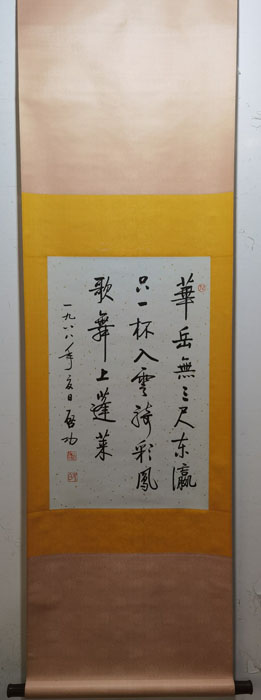 華岳無三尺東瀛
只一杯入雲騎彩鳳
歌舞上蓬萊
一九八八年夏日 啓功